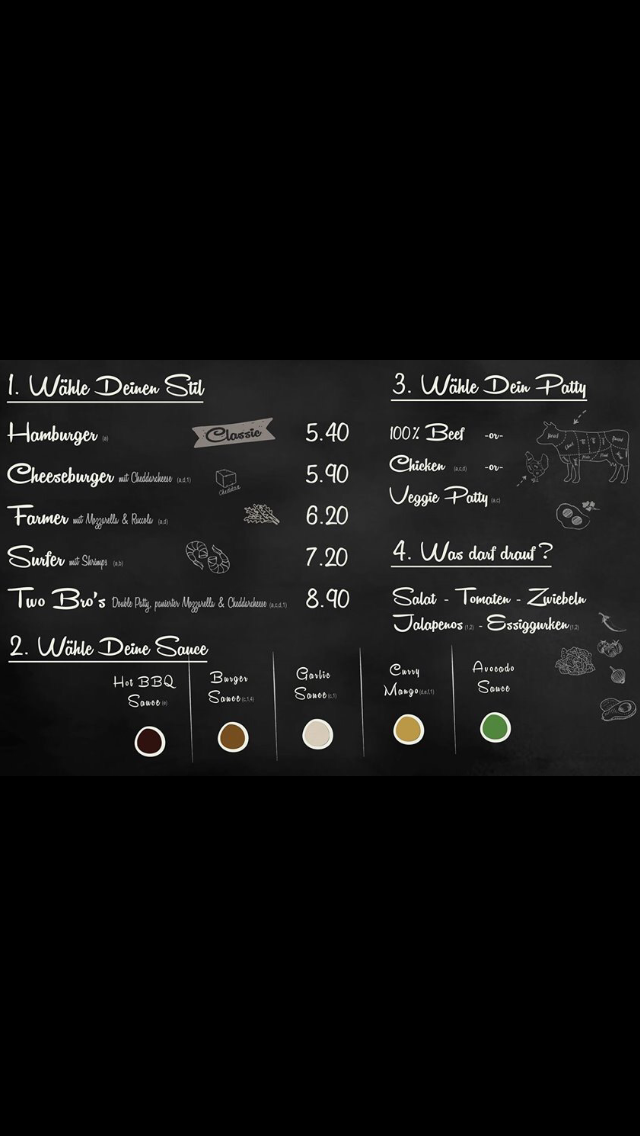 1. Wähle Deinen Stil
Hamburger (a) Classic 5.40
Cheeseburger mit Cheddarcheese (a,d,1) Cheddar 5.90
Farmer mit Mozzarella & Ruccola (a,d) 6.20
Surfer mit Shrimps (a,b) 7.20
Two Bro's Double Patty, panierter Mozzarella & Cheddarcheese 8.90
2. Wähle Deine Sauce
Hot BBQ
Sauce
Burger
Sauce
Garlic
Sauce
Curry
Mango
Avocado
Sauce
3. Wähle Dein Patty
100% Beef -or-
Chicken -or-
Veggie Patty
4. Was darf drauf?
Salat - Tomaten - Zwiebeln
Jalapenos (1,2) - Essiggurken (1,2)